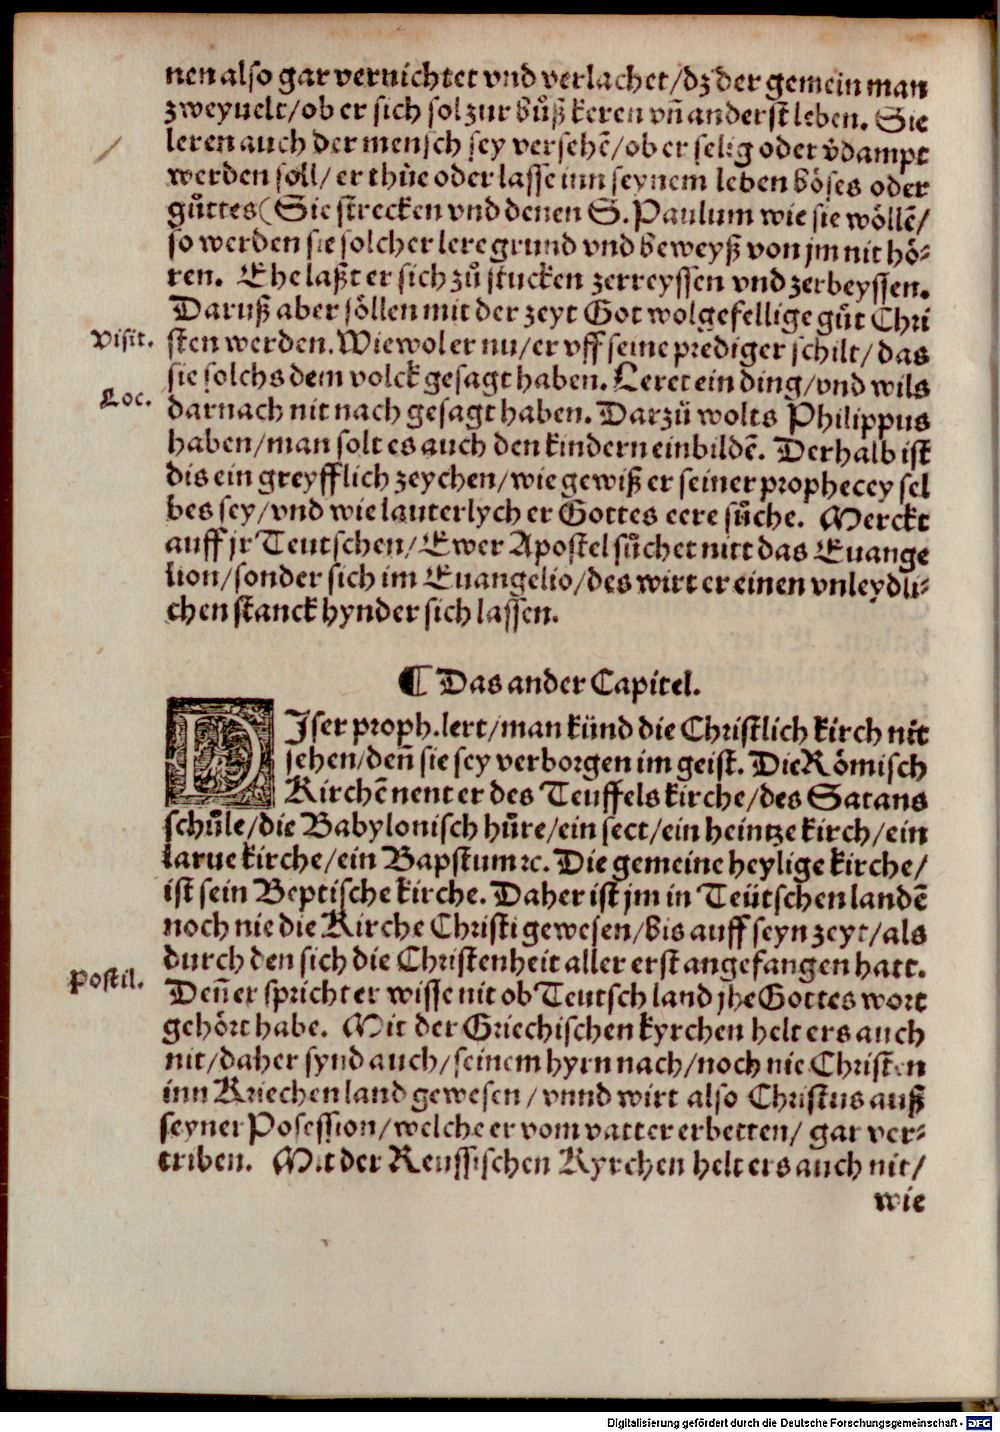 nen also gar vernichtet vnd verlachet/dz der gemein man
zweyuelt/ob er sich sol zur bůß keren vñ anderst leben. Sie
leren auch der mensch sey versehẽ/ob er selig oder v̊dampt
werden soll/ er thüe oder lasse inn seynem leben böses oder
gůttes(Sie strecken vnd denen S. Paulum wie sie wöllẽ/
so werden sie solcher lere grund vnd beweyß von jm nit hö⸗
ren. Ehe laßt er sich zů stucken zerreyssen vnd zerbeyssen.
Daruß aber söllen mit der zeyt Got wolgefellige gůt Chri
Visit. sten werden. Wiewol er nu/er vff seine prediger schilt/ das
sie solchs dem volck gesagt haben. Leret ein ding/vnd wils
Loc. darnach nit nach gesagt haben. Darzü wolts Philippus
haben/man solt es auch den kindern einbildẽ. Derhalb ist
dis ein greyfflich zeychen/wie gewiß er seiner prophecey sel
bes sey/vnd wie lauterlych er Gottes eere sůche. Merckt
auff jr Teutschen/Ewer Apostel sůchet nitt das Euange
lion/sonder sich im Euangelio/des wirt er einen vnleydli⸗
chen stanck hynder sich lassen.
¶ Das ander Capitel.
DIser proph.lert/man künd die Christlich kirch nit
sehen/deñ sie sey verborgen im geist. Die Römisch
Kirchẽ nent er des Teuffels kirche/des Satans
schůle/die Babylonisch hůre/ein sect/ein heintze kirch/ein
larue kirche/ein Bapstum ⁊c. Die gemeine heylige kirche/
ist sein Beptische kirche. Daher ist jm in Teütschen landẽ
noch nie die Kirche Christi gewesen/bis auff seyn zeyt/als
durch den sich die Christenheit aller erst angefangen hatt.
Postil. Deñ er spricht er wisse nit ob Teutsch land jhe Gottes wort
gehört habe. Mit der Griechischen kyrchen helt ers auch
nit/daher synd auch/seinem hyrn nach/noch nie Christen
inn Kriechen land gewesen/vnnd wirt also Christus auß
seyner Posession/welche er vom vatter erbetten/ gar ver⸗
triben. Mit der Reussischen Kyrchen helt ers auch nit/
wie
Digitalisierung gefördert durch die Deutsche Forschungsgemeinschaft - DFG